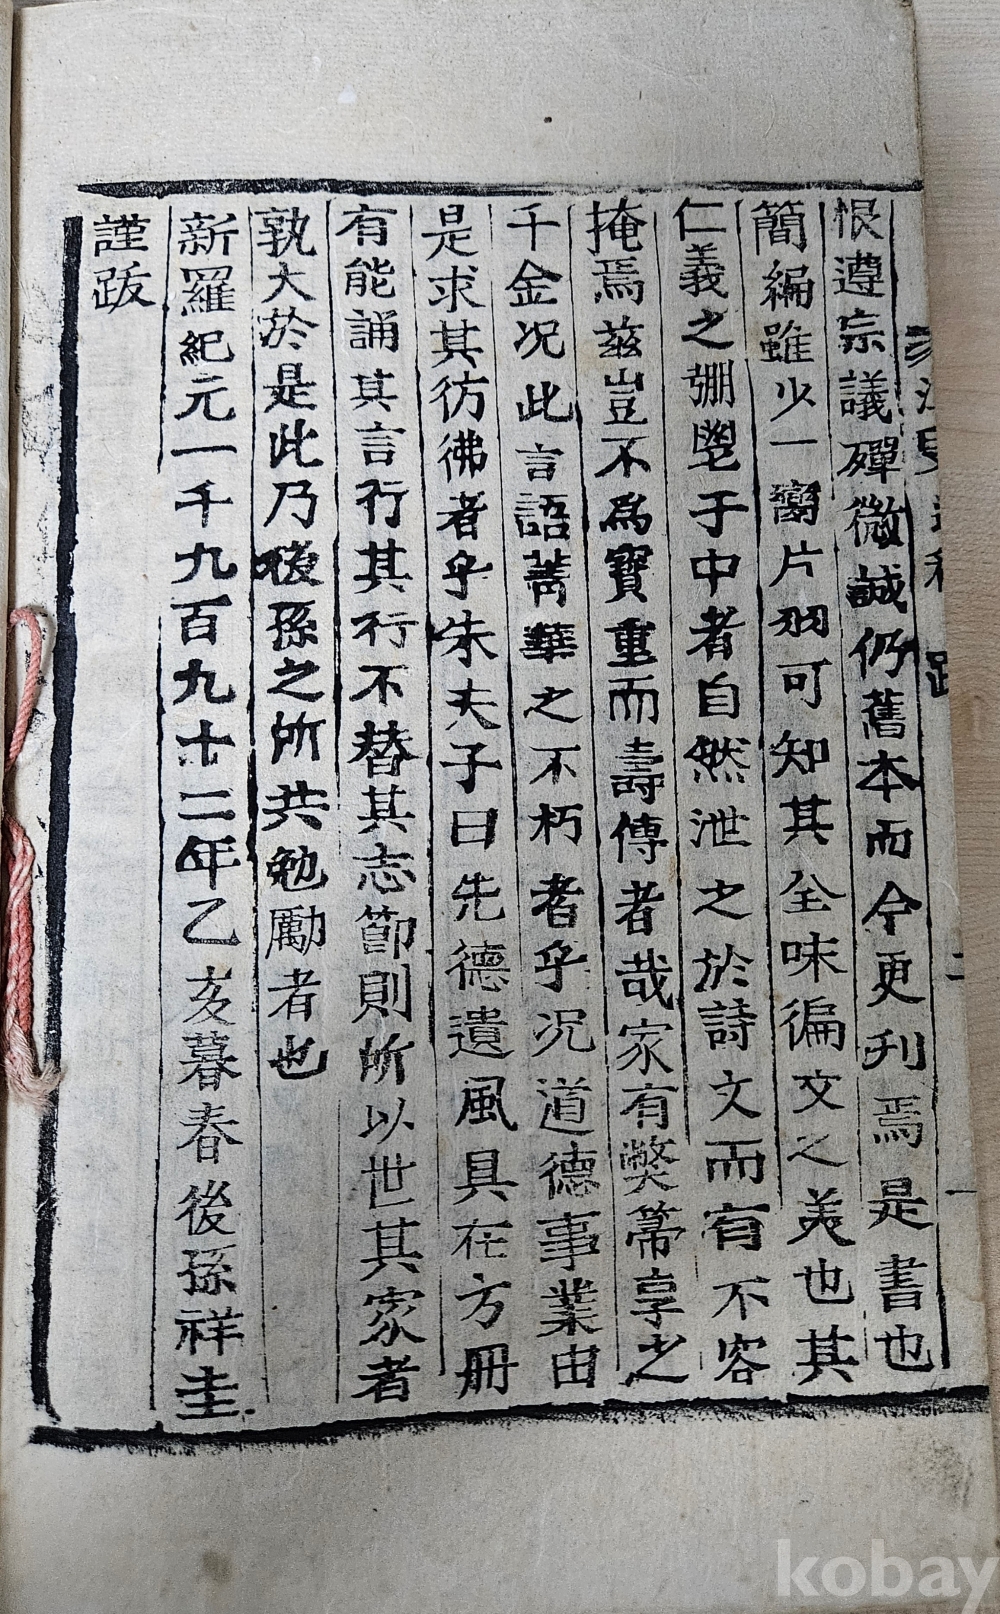 恨遵宗議殫微誠仍舊本而今更刋焉是書也
簡編雖少一臠片羽可知其全味徧文之美也其
仁義之弸中者自然泄之於詩文而有不容
掩焉玆豈不爲寶重而壽傳者哉家有獘箒享之
千金况此言語菁華之不朽者乎况道德事業由
是求其彷彿者乎朱夫子曰先德遺風具在方冊
有能誦其言行其行不替其志節則所以世其家者
孰大於是此乃後孫之所共勉勵者也
新羅紀元一千九百九十二年乙亥暮春後孫祥圭
謹跋
kobay